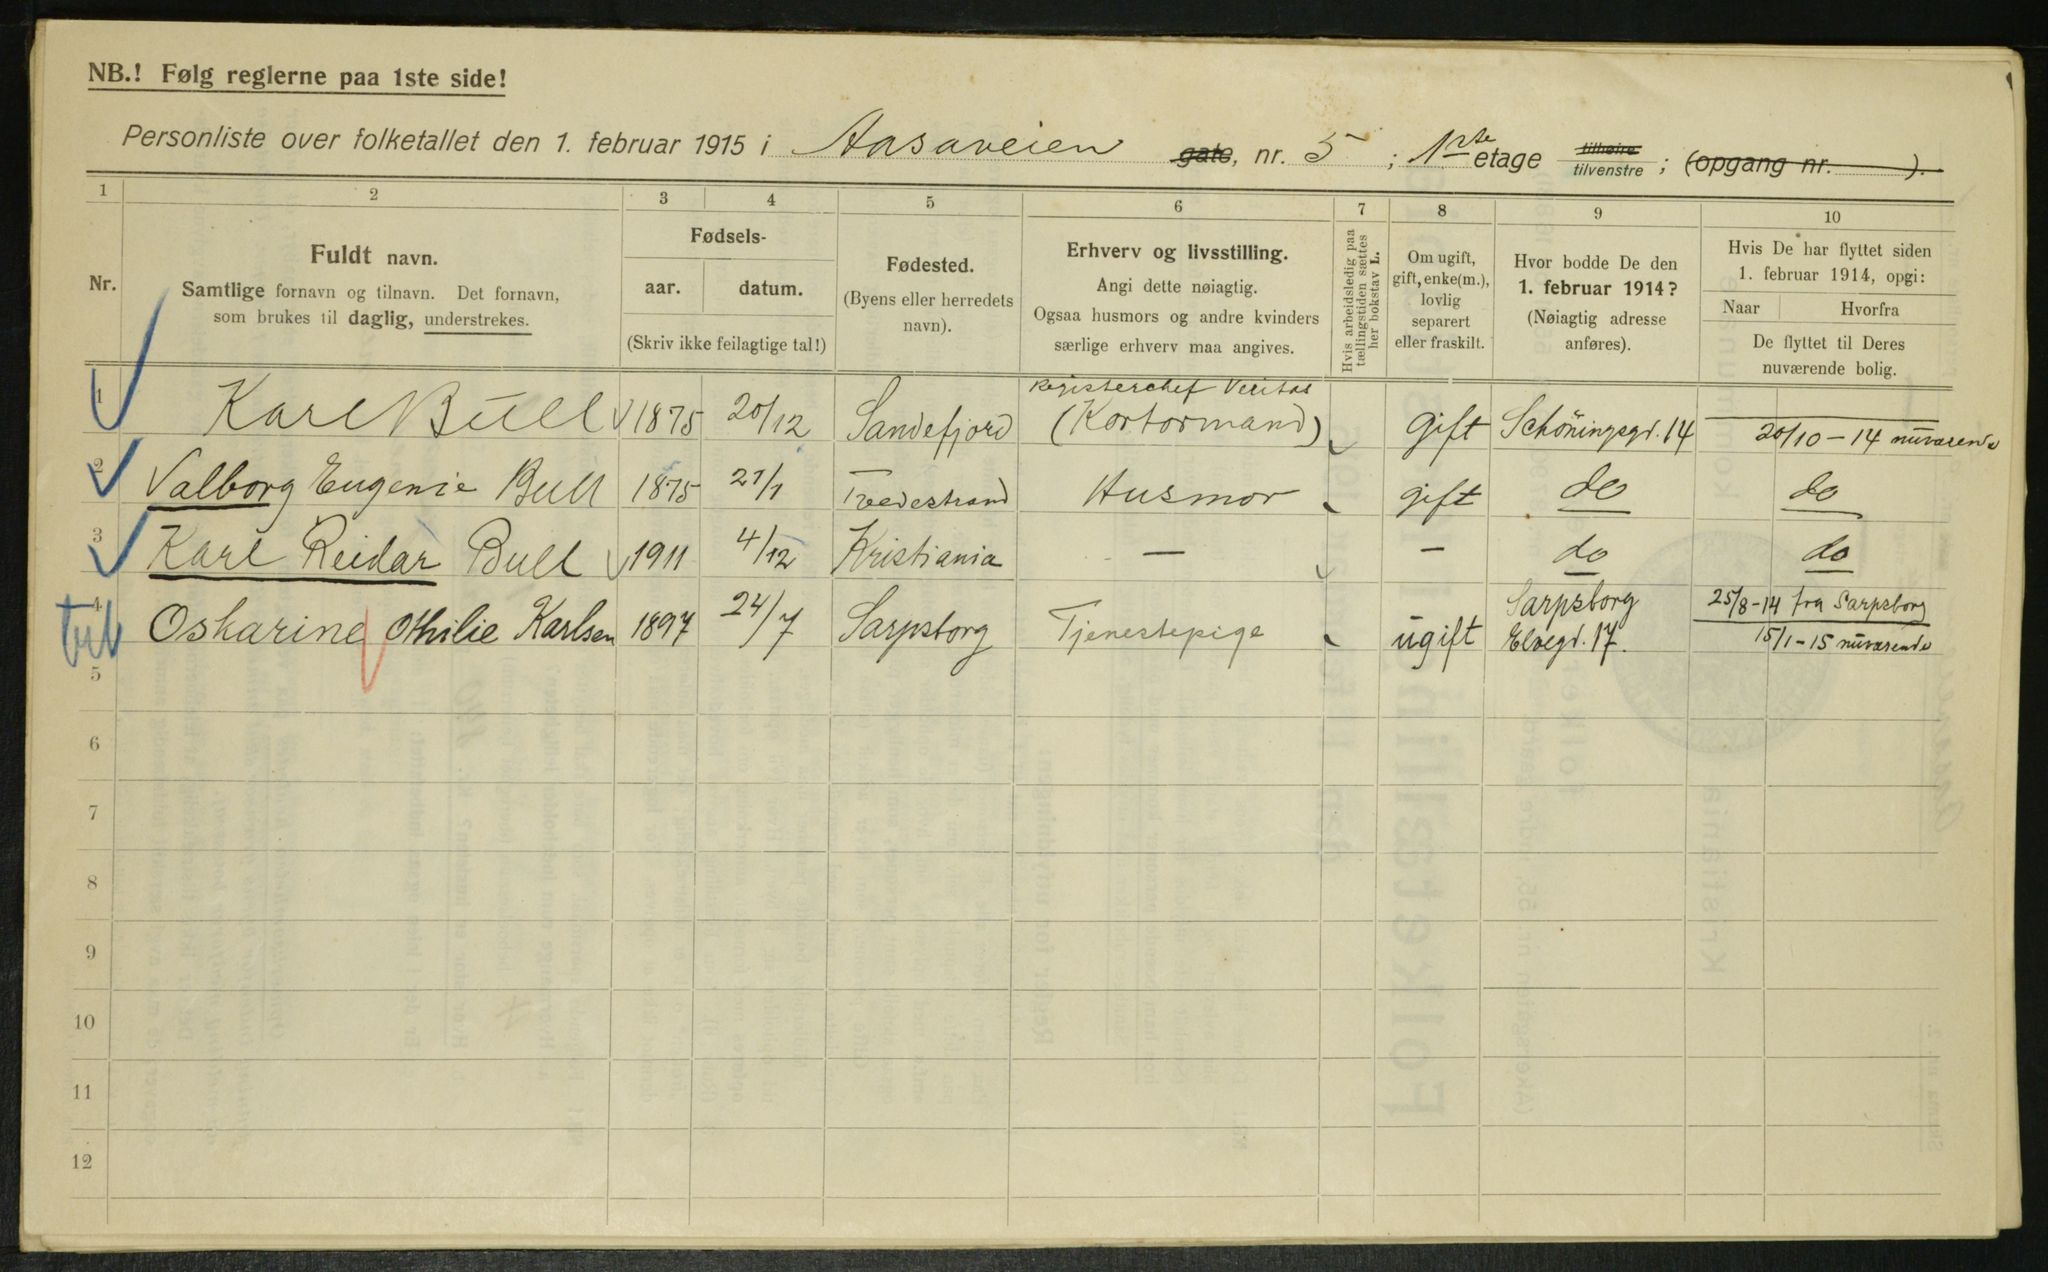 NB.! Følg reglerne paa 1ste side!
Personliste over folketallet den 1. februar 1915 i Aasaveien gate, nr. 5 ; 1ste etage tilhøire tilvenstre ; (opgang nr. ).
1 2 3 4 5 6 7 8 9 10
Nr.
Fuldt navn.
Samtlige fornavn og tilnavn. Det fornavn,
som brukes til daglig, understrekes.
Fødsels-
aar. datum.
(Skriv ikke feilagtige tal!)
Fødested.
(Byens eller herredets
navn).
Erhverv og livsstilling.
Angi dette nøiagtig.
Ogsaa husmors og andre kvinders
særlige erhverv maa angives.
Hvis arbeidsledig paa
tællingstiden sættes
her bokstav L.
Om ugift,
gift, enke(m.),
lovlig
separert
eller fraskilt.
Hvor bodde De den
1. februar 1914?
(Nøiagtig adresse
anføres).
Hvis De har flyttet siden
1. februar 1914, opgi:
Naar Hvorfra
De flyttet til Deres
nuværende bolig.
Registerchef Veritas
1 Karl Bull 1875 20/12 Sandefjord (Kontormand) gift Schöningsgd. 14 20/10-14 nuværende
2 Valborg Eugenie Bull 1875 21/1 Tvedestrand Husmor gift do do
3 Karl Reidar Bull 1911 4/12 Kristiania — — do do
4 Oskarine Othilie Karlsen 1897 24/7 Sarpsborg Tjenestepige ugift Sarpsborg 25/8-14 fra Sarpsborg
Elvegd. 17. 15/1-15 nuværende
5
6
7
8
9
10
11
12